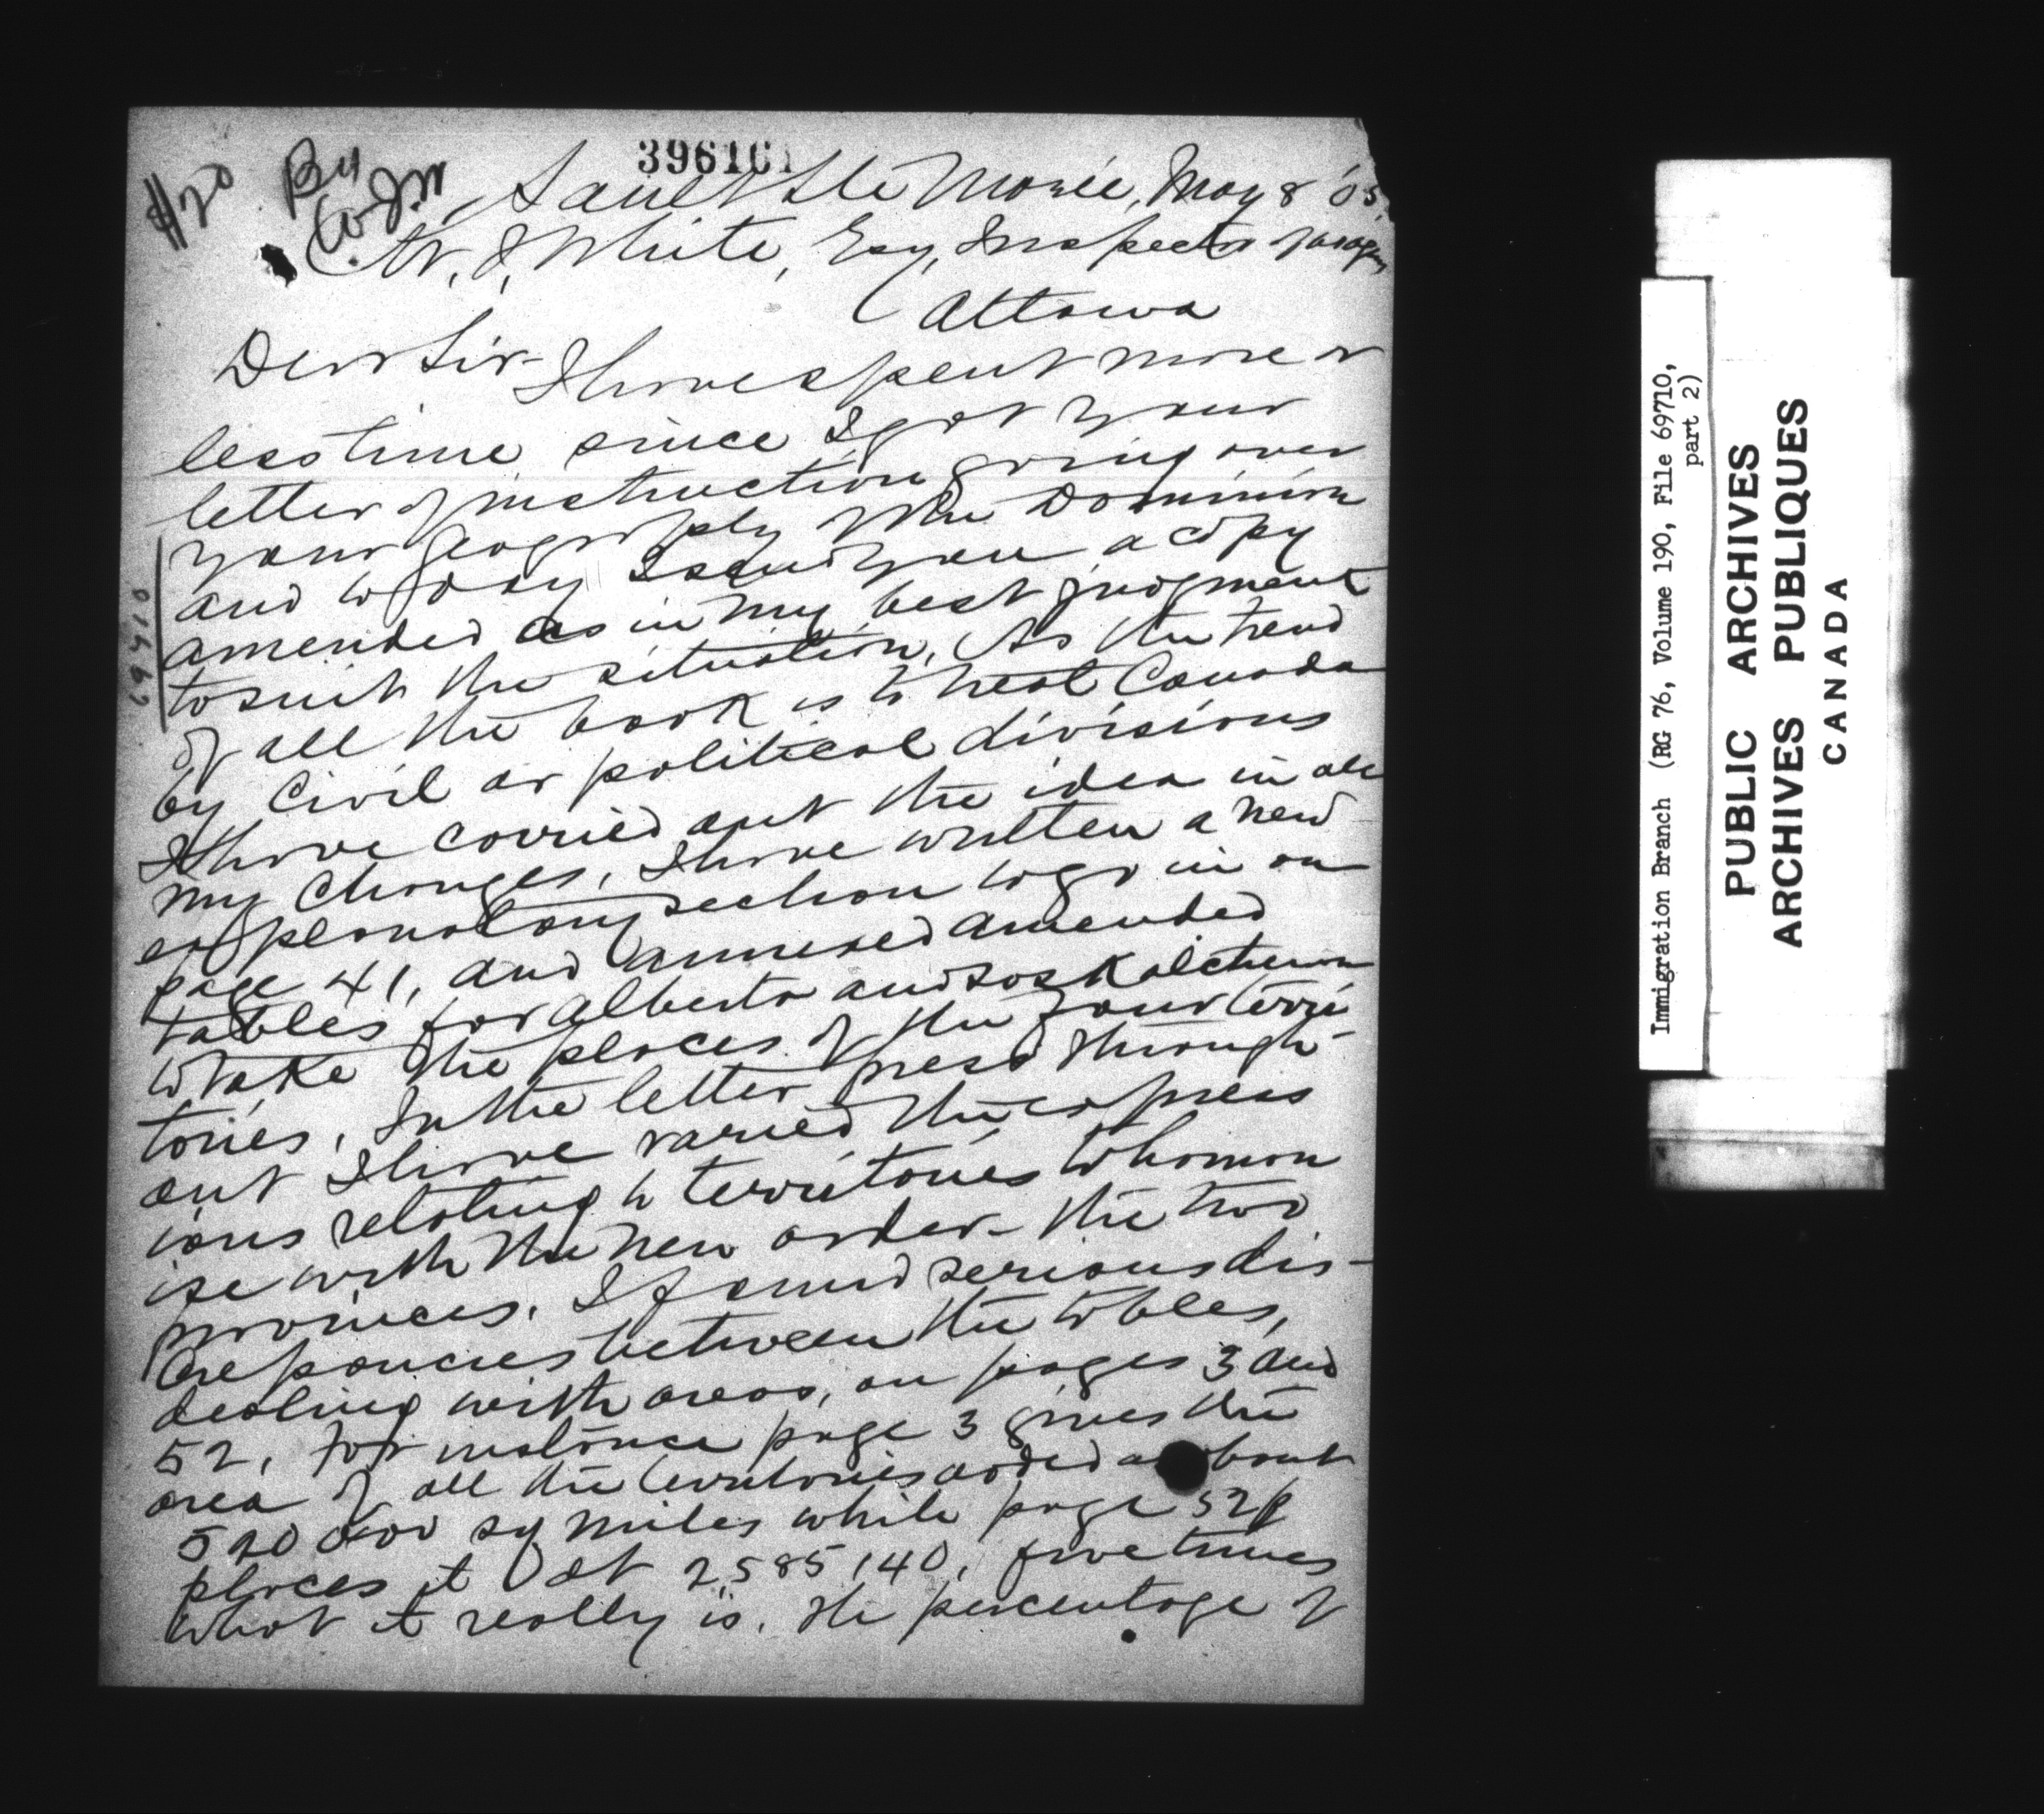 396101
#20
By
W.J.W
Sault Ste Marie, May 8 '05.
W. J. White, Esq, Inspector Agencies
Ottawa
Dear Sir - I have spent more or
less time since I got your
letter of instruction going over
your geography of the Dominion
and today I send you a copy
amended as in my best judgment
to suit the situation. As the trend
of all the book is to treat Canada
by Civil or political divisions
I have carried out the idea in all
my changes. I have written a new
explanatory section to go in on
page 41, and annexed amended
tables for Alberta and Saskatchewan
to take the places of the four terri-
tories. In the letter press through-
out I have varied the express
ions relating to territories to harmon
ise with the new order - the two
provinces. I found serious dis-
crepancies between the tables,
dealing with areas, on pages 3 and
52, for instance page 3 gives the
area of all the territories added as about
520 000 sq miles while page 52
places it at 2,585,140, five times
what it really is. The percentage of
69710
Immigration Branch (RG 76, Volume 190, File 69710,
part 2)
PUBLIC ARCHIVES
ARCHIVES PUBLIQUES
CANADA